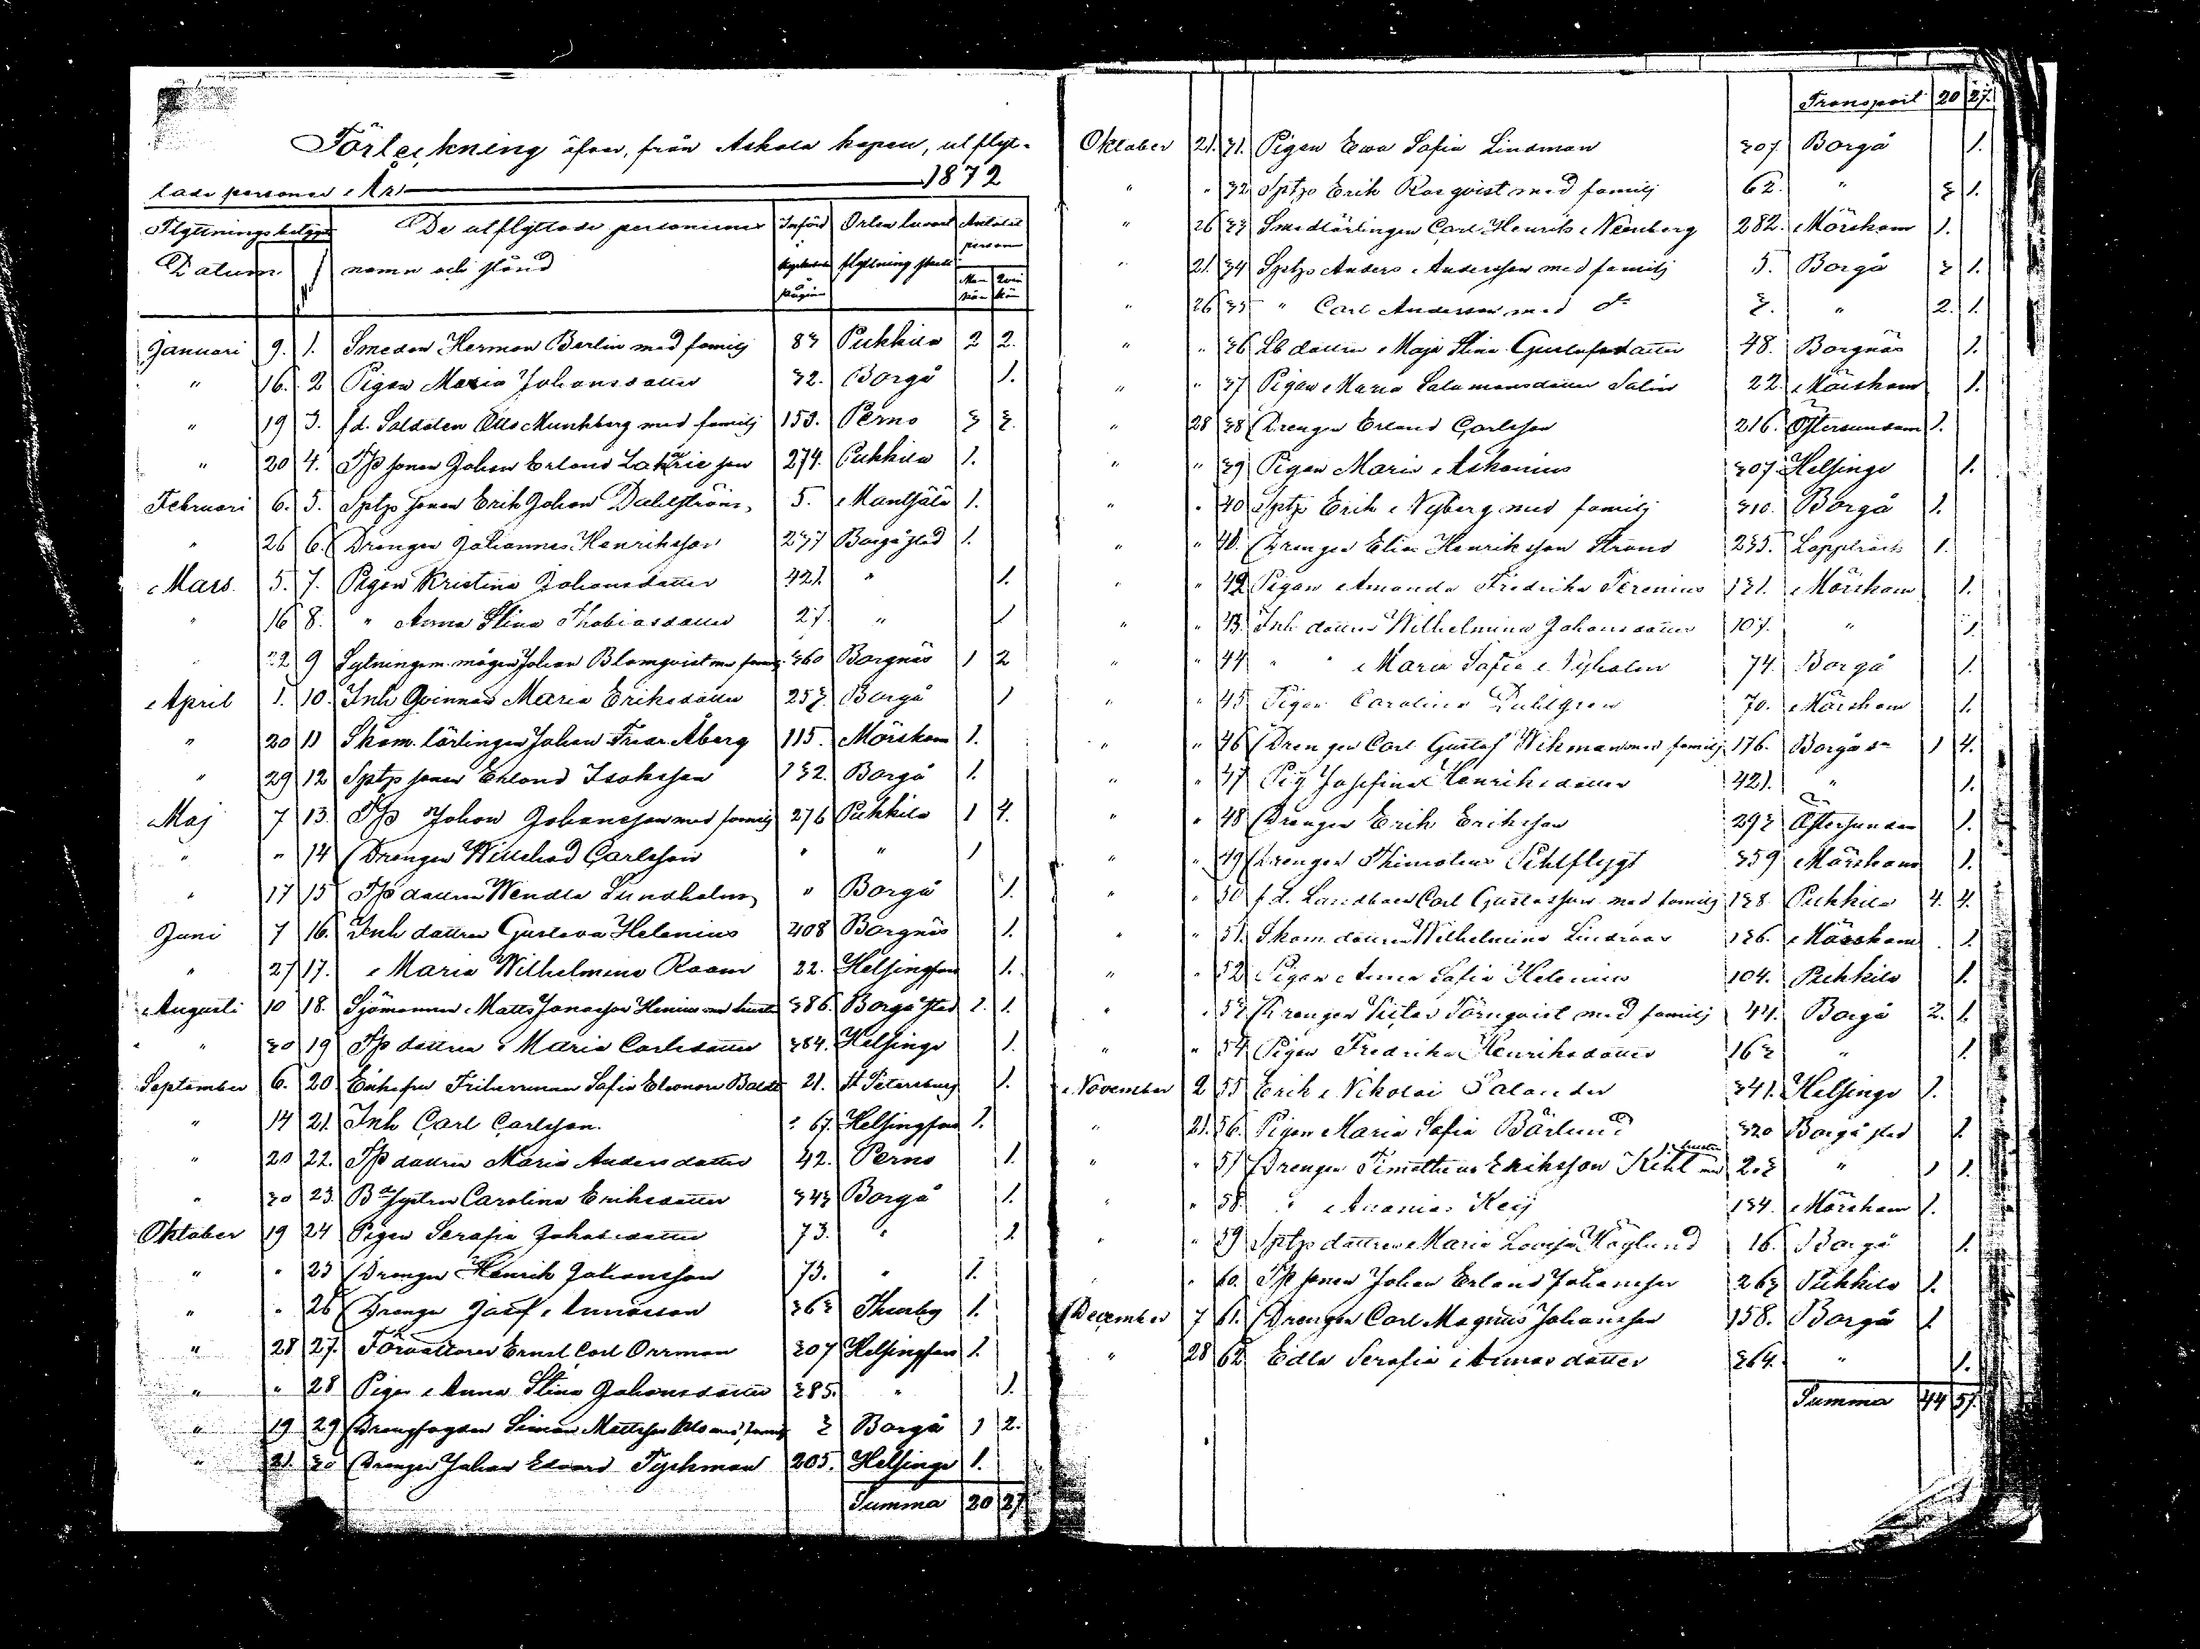 Förteckning öfver, från Askola kapell, utflyt-
tade personer År 1872
Flyttningsbetyg
De utflyttade personernas
Införd
Orten hvarest
Antalet
Datum
namn och stånd
flyttning skett
person
pagina
Man kön
Qvin kön
Januari 9. 1. Smeden Herman Berlin med familj 83 Pukkila 2 2.
" 16. 2 Pigan Maria Johansdotter 32. Borgå 1.
" 19 3. f.d. Soldaten Otto Munkberg med familj 153. Perno 3 3.
" 20 4. Tp sonen Johan Erland Zakrie son 274. Pukkila 1.
Februari 6. 5. Sptp sonen Erik Johan Dahlström, 5. Mäntsälä 1.
" 26 6. Drengen Johannes Henriksson 237 Borgå stad 1.
Mars. 5. 7. Pigan Kristina Johansdotter 421. " 1.
" 16 8. " Anna Stina Thobiasdotter 27. " 1
" 22 9 Sytningsm. mågen Johan Blomqvist med familj 360 Borgnäs 1 2
April 1. 10. Inh Qvinnan Maria Eriksdotter 253. Borgå 1
" 20 11 Skom. lärlingen Johan Fredr Åberg 115. Mörskom 1.
" 29 12 Sptp sonen Erland Isaksson 132. Borgå 1.
Maj 7 13. Tp Johan Johansson med familj 276 Pukkila 1 4.
" " 14 Drengen Willehad Carlsson " " 1
" 17 15 Tp dottren Wendla Sundholm " Borgå 1.
Juni 7 16. Inh dottren Gustava Helenius 408 Borgnäs 1.
" 27 17. Maria Wilhelmina Raam 22. Helsingfors 1.
Augusti 10 18. Sjömannen Matts Jonasson Henius med hustru 386. Borgå stad 1. 1.
" 30 19 Tp dottren Maria Carlsdotter 384. Helsinge 1.
September 6. 20 Enkefru Friherrinnan Sofia Eleonora Boldt 21. St Petersburg 1.
" 14 21. Inh Carl Carlsson. 67. Helsingfors 1.
" 20 22. Tp dottren Maria Andersdotter 42. Perno 1.
" 30 23. Systren Carolina Eriksdotter 343 Borgå 1.
Oktober 19 24 Pigan Serafia Johansdotter 73. " 1
" " 25 Drengen Henrik Johansson 73. " 1.
" " 26 Drengen Josef Annasson 363 Thusby 1.
" 28 27. Förvaltaren Ernst Carl Orrman 307 Helsingfors 1.
" " 28 Pigan Anna Stina Johansdotter 385. " 1.
" 19 29 Drengfogden Simon Mattsson med familj 3 Borgå 1 2.
" 21. 30 Drengen Johan Edvard Tychman 205. Helsinge 1.
Summa 20 27
Transport 20 27.
Oktober 21. 31. Pigan Ewa Sofia Lindman 307 Borgå 1.
" " 32 Sptp Erik Rosqvist med familj 62. " 3 1.
" 26 33 Smedlärlingen Carl Henrik Nemberg 282. Mörskom 1.
" 21. 34 Sptp Anders Andersson med familj 5. Borgå 3 1.
" 26 35 " Carl Andersson med do 3. " 2. 1.
" " 36 Lb dottren Maja Stina Gustafsdotter 48. Borgnäs 1.
" " 37 Pigan Maria Salamonsdotter Salin 22. Mörskom 1.
" 28 38 Drengen Erland Carlsson 216. Östersundom 1.
" " 39 Pigan Maria Askonius 307. Helsinge 1.
" " 40 Sptp Erik Nyberg med familj 310. Borgå 1.
" " 41. Drengen Elias Henriksson Strand 235. Lappträsk 1.
" " 42 Pigan Amanda Fredrika Ferenius 131. Mörskom 1.
" " 43. Inh dottren Wilhelmina Johansdotter 107. " 1.
" " 44 " " Maria Sofia Nyholm 74. Borgå 1.
" " 45 Pigan Carolina Dahlgren 70. Mörskom 1.
" " 46 Drengen Carl Gustaf Wikman med familj 176. Borgå sn 1 4.
" " 47 Pig Josefina Henriksdotter 421. " 1.
" " 48 Drengen Erik Eriksson 293 Östersundom 1.
" " 49 Drengen Thimoteus Pihlflygt 359 Mörskom 1.
" " 50 f.d. Landbon Carl Gustafsson med familj 138 Pukkila 4. 4.
" " 51. Skom. dottren Wilhelmina Lindroos 136. Mörskom 1.
" " 52 Pigan Anna Sofia Helenius 104. Pukkila 1.
" " 53 Drengen Victor Törnqvist med familj 44. Borgå 2. 1.
" " 54 Pigan Fredrika Henriksdotter 163 " 1
November 2 55 Erik Nikolai Palander 341. Helsinge 1.
" 21. 56. Pigan Maria Sofia Bärlund 320 Borgå stad 1
" " 57 Drengen Timotheus Eriksson Kihl med hustru 203 " 1 1.
" " 58. " Ananias Keij 134. Mörskom 1.
" " 59 Sptp dottren Maria Lovisa Höglund 16. Borgå 1.
" " 60. Tp sonen Johan Erland Johansson 263 Pukkila 1.
December 7 61. Drengen Carl Magnus Johansson 158. Borgå 1
" 28 62. Edla Serafia Annasdotter 364. " 1.
Summa 44 57.